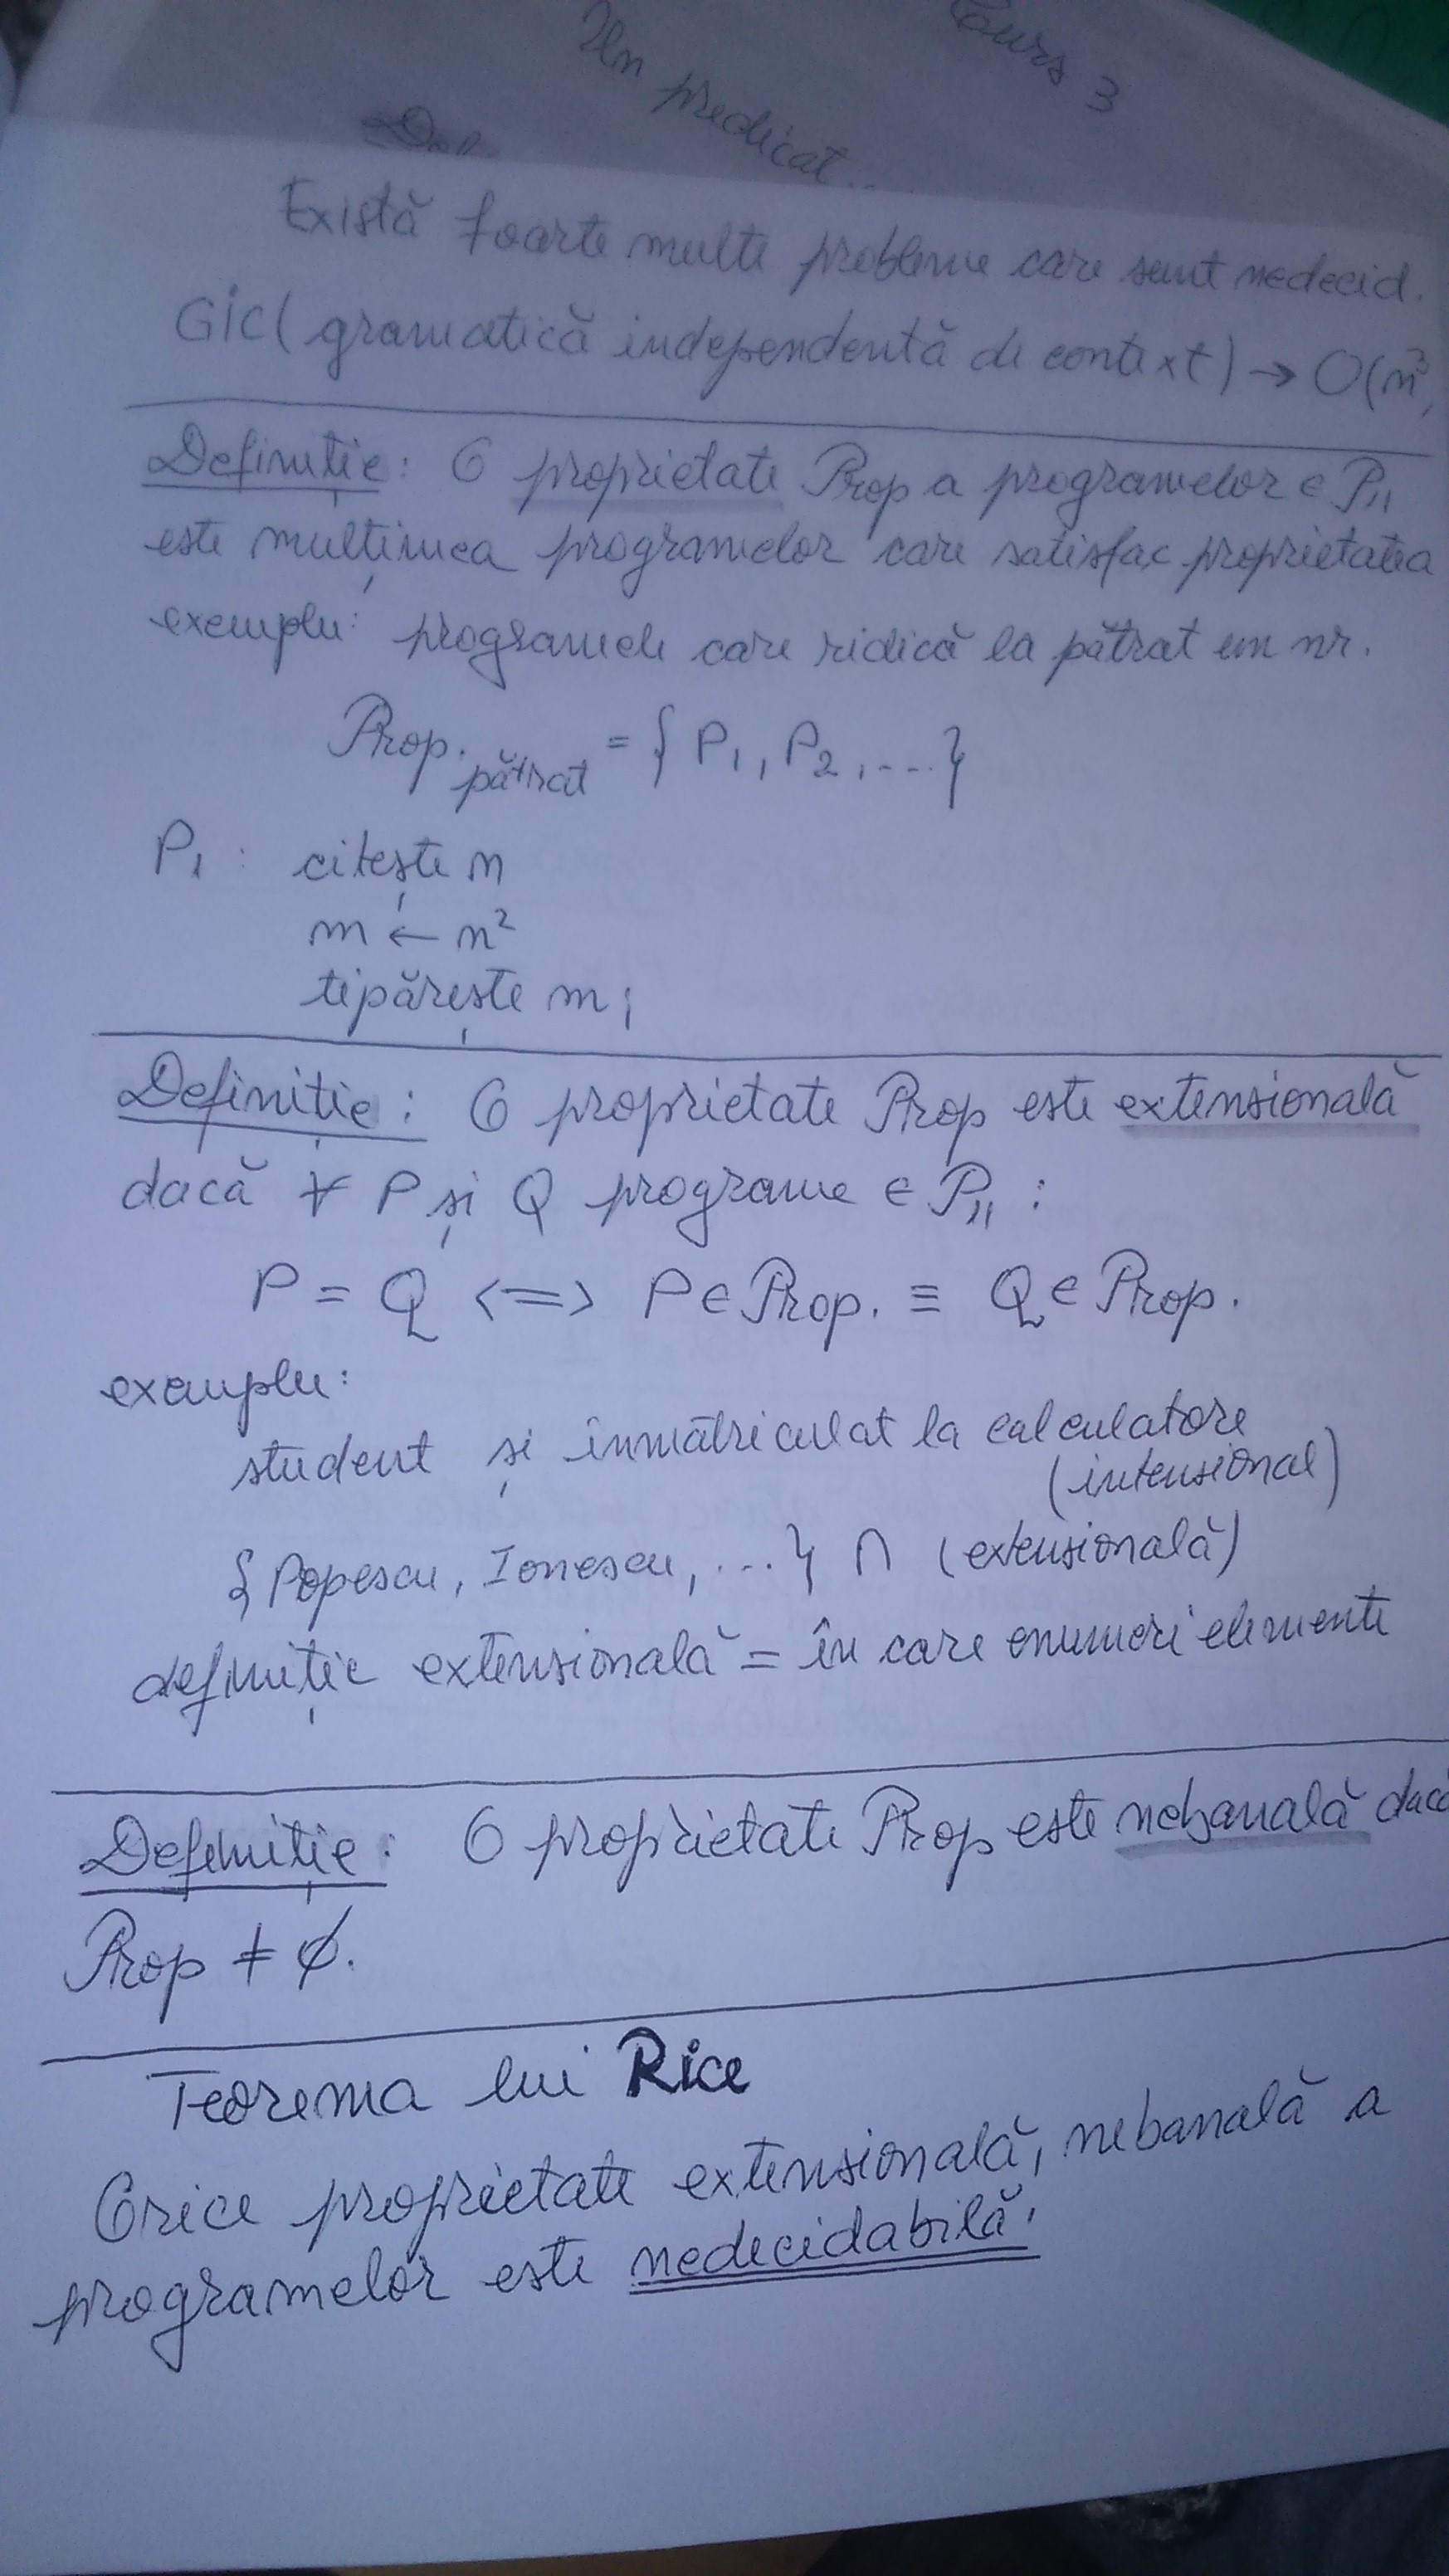 Curs 3
Un predicat...
Există foarte multe probleme care sunt nedecid.
GIC (gramatică independentă de context) → O(n³
Definiție: O proprietate Prop a programelor ∈ P₁₁
este mulțimea programelor care satisfac proprietatea
exemplu: programele care ridică la pătrat un nr.
Prop.pătrat = { P₁, P₂, ... }
P₁ : citește n
m ← n²
tipărește m;
Definiție: O proprietate Prop este extensională
dacă ∀ P și Q programe ∈ P₁₁ :
P = Q <=> P ∈ Prop. ≡ Q ∈ Prop.
exemplu:
student și înmatriculat la calculatore
(intensional)
{ Popescu, Ionescu, ... } ∩ (extensională)
definiție extensională = în care enumeri elemente
Definiție: O proprietate Prop este nebanală dacă
Prop ≠ ∅.
Teorema lui Rice
Orice proprietate extensională, nebanală a
programelor este nedecidabilă.